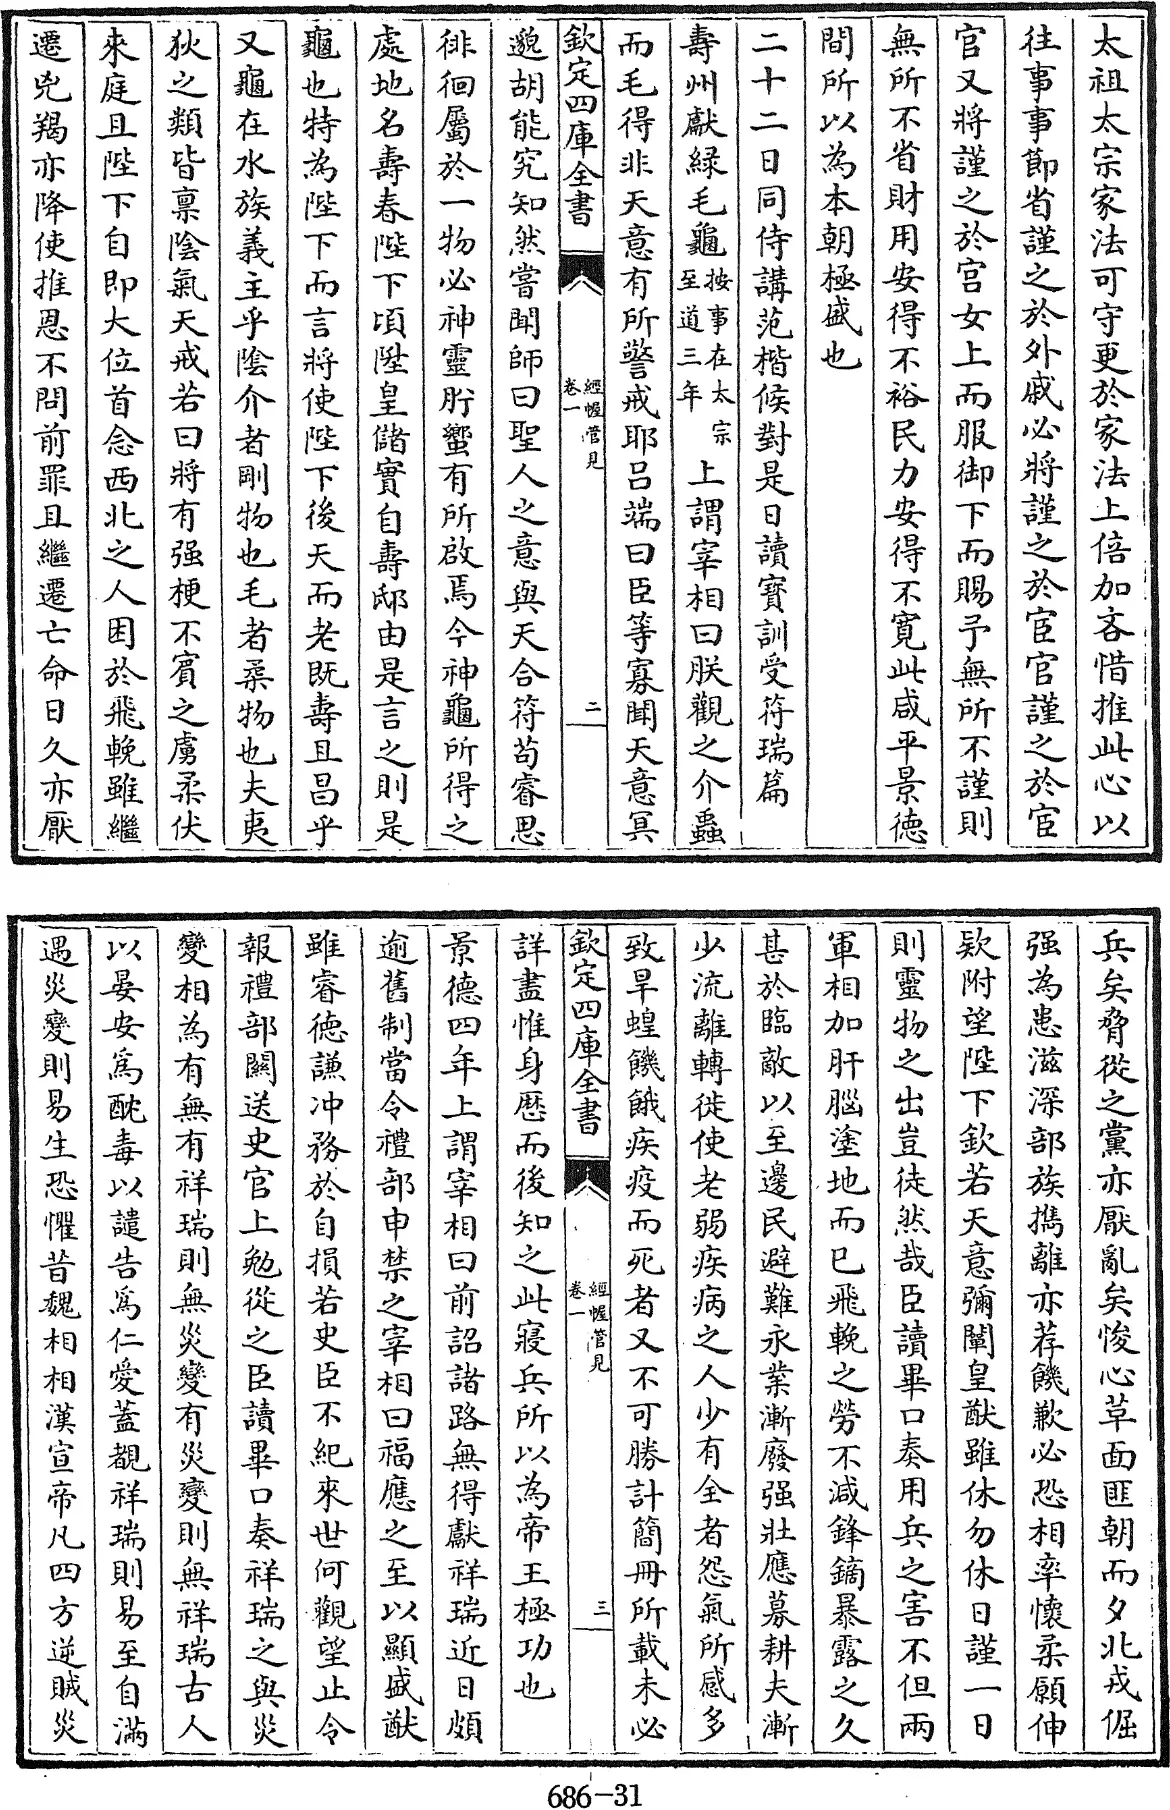 太祖太宗家法可守更於家法上倍加吝惜推此心以
往事事節省謹之於外戚必將謹之於宦官謹之於宦
官又將謹之於宫女上而服御下而賜予無所不謹則
無所不省財用安得不裕民力安得不寛此咸平景德
間所以為本朝極盛也
二十二日同侍講范楷候對是日讀寳訓受符瑞篇
壽州獻緑毛龜按事在太宗至道三年上謂宰相曰朕觀之介蟲
而毛得非天意有所警戒耶吕端曰臣等寡聞天意冥
欽定四庫全書
經幄管見
卷一
二
邈胡能究知然嘗聞師曰聖人之意與天合符苟睿思
徘徊屬於一物必神靈肸蠁有所啟焉今神龜所得之
處地名壽春陛下頃陞皇儲實自壽邸由是言之則是
龜也特為陛下而言將使陛下後天而老既壽且昌乎
又龜在水族義主乎隂介者剛物也毛者柔物也夫夷
狄之類皆禀隂氣天戒若曰將有强梗不賓之虜柔伏
來庭且陛下自即大位首念西北之人困於飛輓雖繼
遷兇羯亦降使推恩不問前罪且繼遷亡命日久亦厭
兵矣脅從之黨亦厭亂矣悛心革面匪朝而夕北戎倔
强為患滋深部族攜離亦荐饑歉必恐相率懷柔願伸
欵附望陛下欽若天意彌闡皇猷雖休勿休日謹一日
則靈物之出豈徒然哉臣讀畢口奏用兵之害不但兩
軍相加肝腦塗地而已飛輓之勞不減鋒鏑暴露之久
甚於臨敵以至邊民避難永業漸廢强壯應募耕夫漸
少流離轉徙使老弱疾病之人少有全者怨氣所感多
致旱蝗饑餓疾疫而死者又不可勝計簡冊所載未必
欽定四庫全書
經幄管見
卷一
三
詳盡惟身歴而後知之此寢兵所以為帝王極功也
景德四年上謂宰相曰前詔諸路無得獻祥瑞近日頗
逾舊制當令禮部申禁之宰相曰福應之至以顯盛猷
雖睿德謙冲務於自損若史臣不紀來世何觀望止令
報禮部關送史官上勉從之臣讀畢口奏祥瑞之與災
變相為有無有祥瑞則無災變有災變則無祥瑞古人
以晏安為酖毒以譴告為仁愛蓋覩祥瑞則易至自滿
遇災變則易生恐懼昔魏相相漢宣帝凡四方逆賊災
686-31